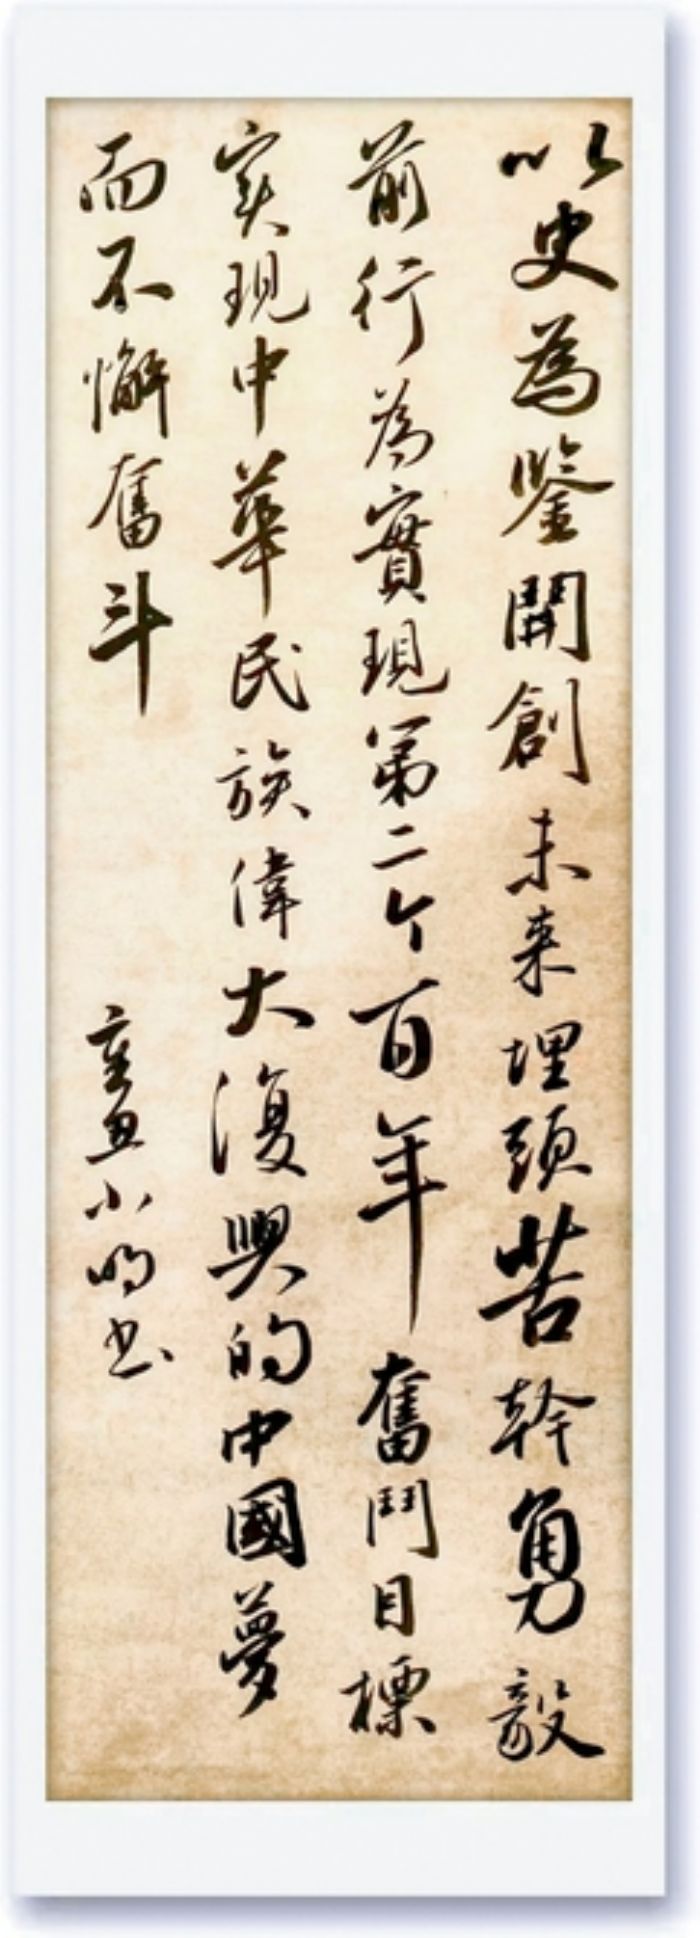 以史為鑒開創未来埋頭苦幹勇毅
前行為實現第二个百年奮鬥目標
実現中華民族偉大復興的中國夢
而不懈奮斗
辛丑小明书